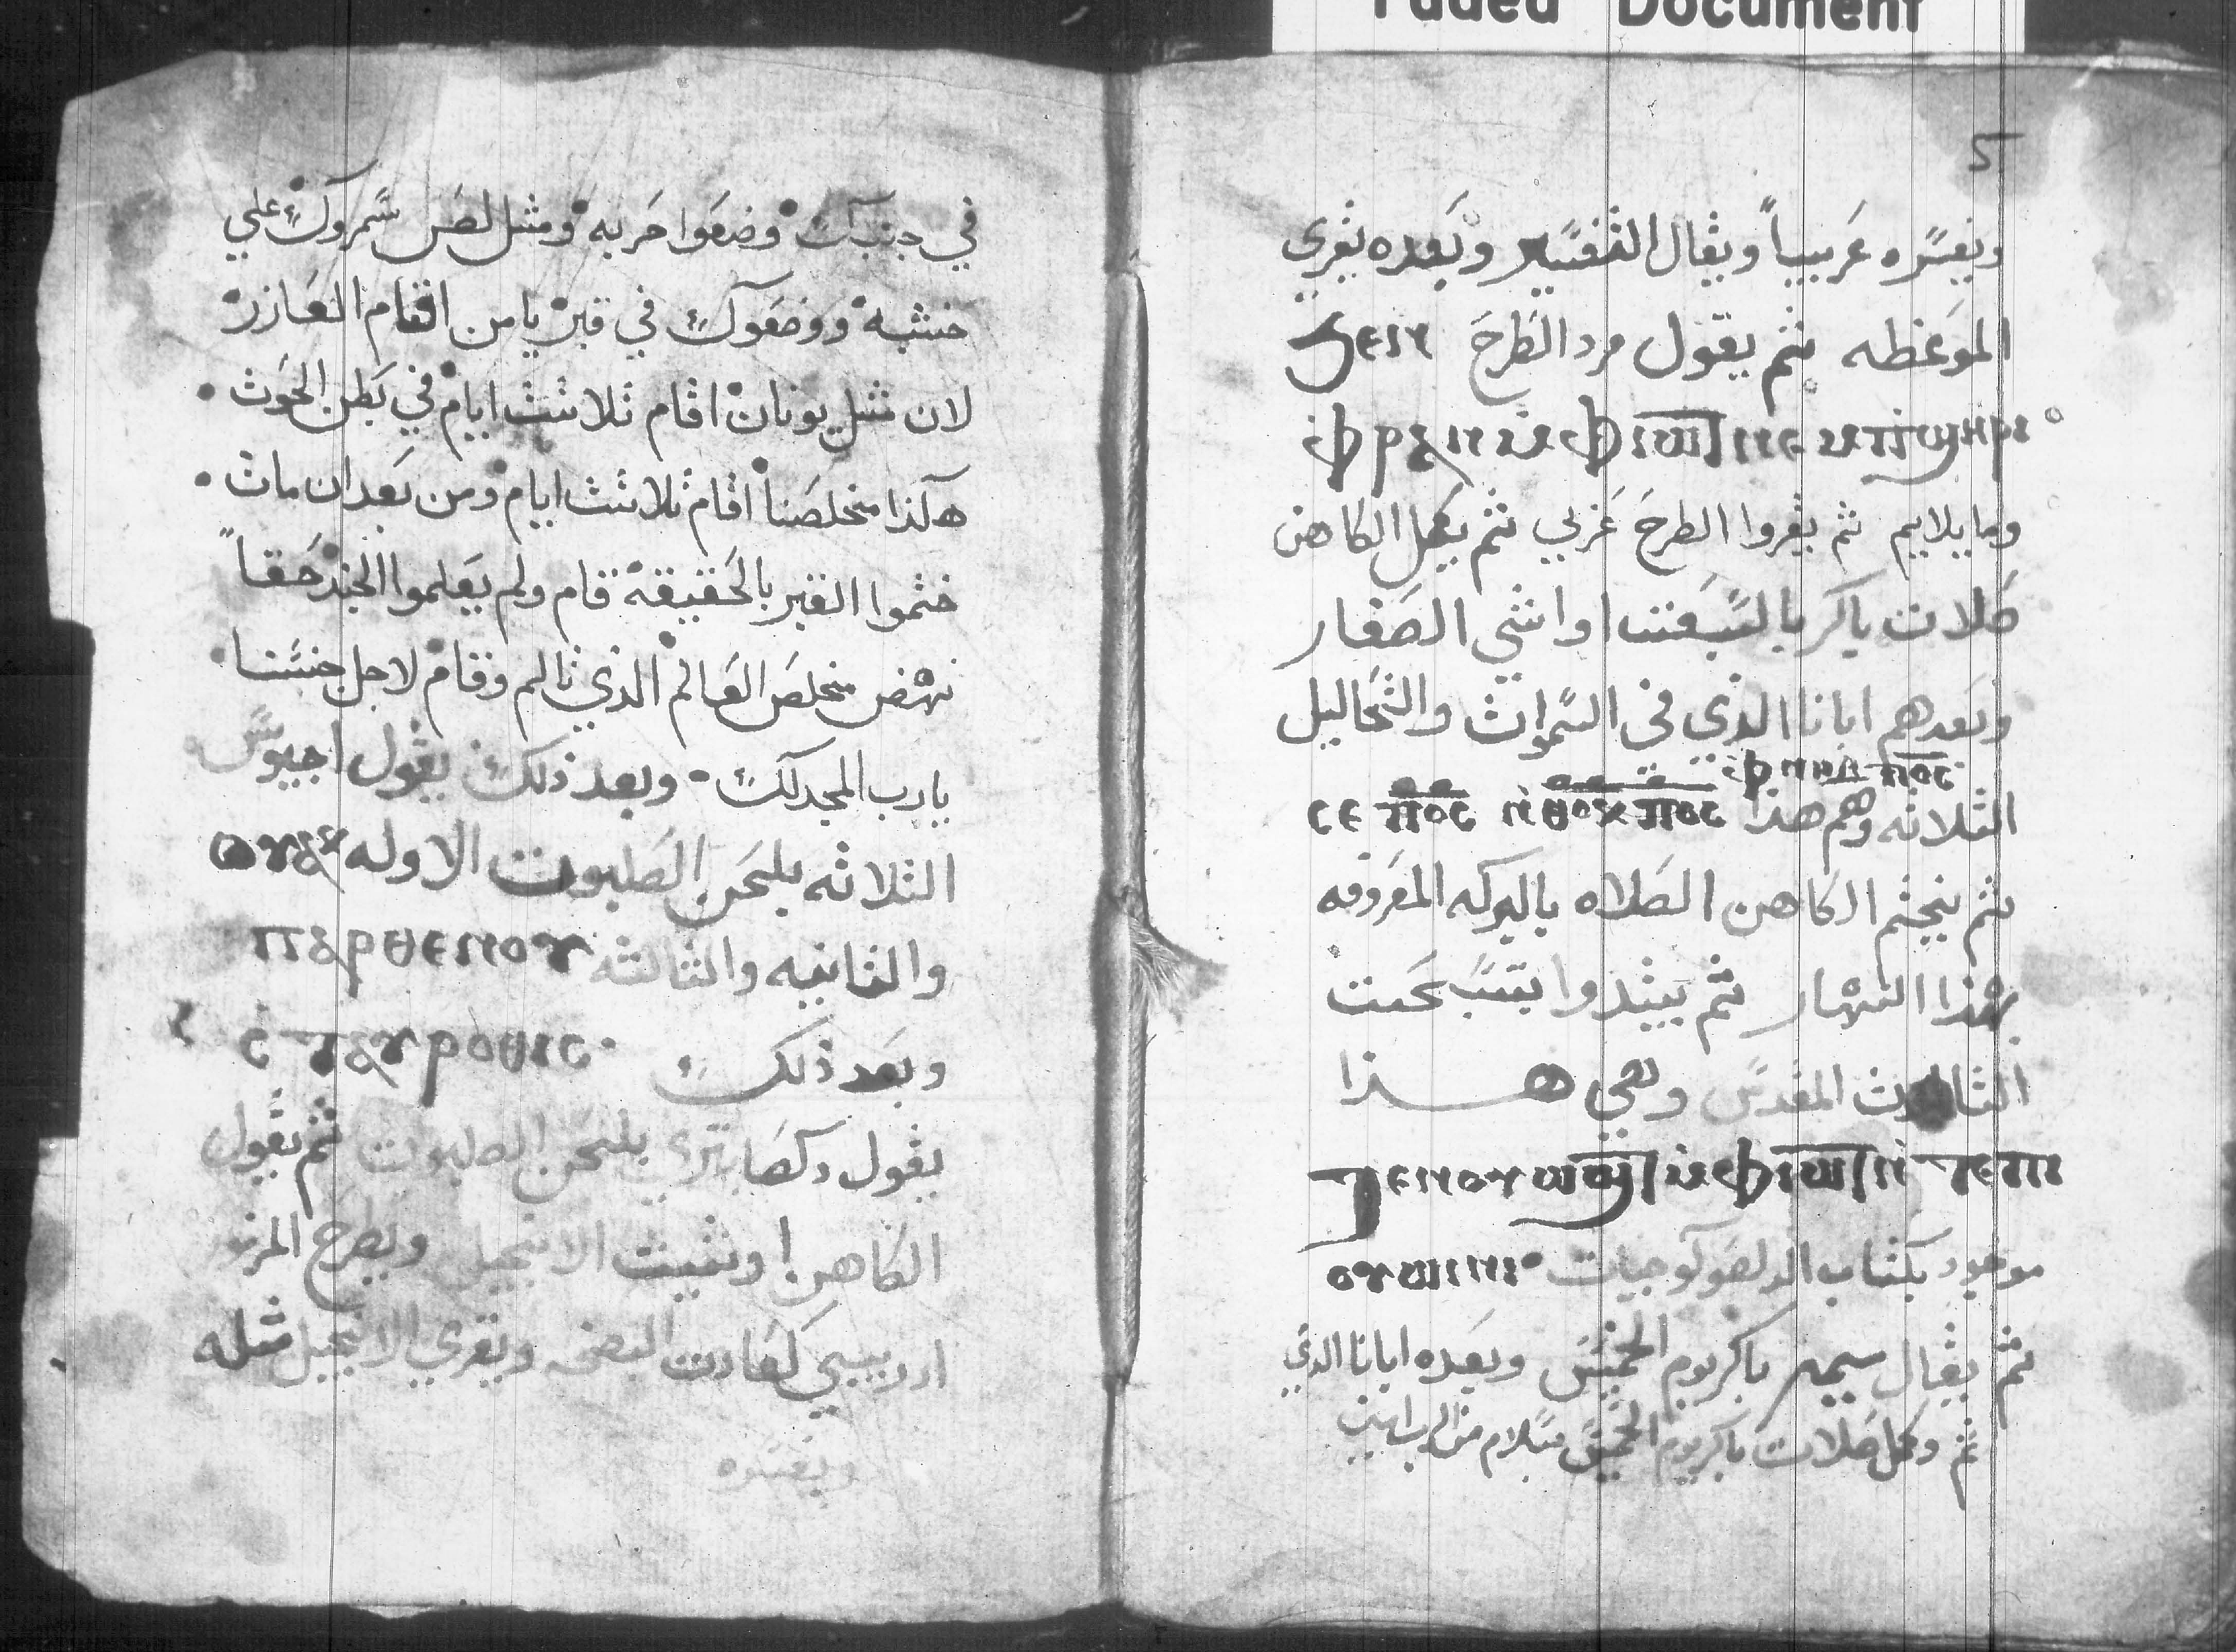 Faded Document
5
ويفسره عربياً ويقال التفسير وبعده يقرى
الموعظه ثم يقول مرد الطرح ϧⲉⲛ
ⲫⲣⲁⲛ ⲙ̇ⲫⲓⲱⲧ ⲛⲉⲙ ⲡϣⲏⲣⲓ
وما يلايم ثم يقروا الطرح عربي ثم يكمل الكاهن
صلات باكر بالتسفنتا واتشي الصغار
وبعدهم ابانا الذي في السموات والتحاليل
ⲫⲛⲏⲃ ⲡ⳪
الثلاثه وهم هذا ⲥⲉ ⲡ⳪ ⲛ̇ⲑⲟⲕ ⲡ⳪
ثم يختم الكاهن الصلاه بالبركه المعروفه
بهذا النهار ثم يبتدوا بتسبحت
الثالوث المقدس وهي هذا
ⲧⲉⲛⲟⲩⲱϣⲧ ⲙ̇ⲫⲓⲱⲧ ⲛ̇ⲧⲉ ⲡⲓ
ⲟⲩⲱⲓⲛⲓ موجود بكتاب الدلصولوجيات
ثم يقال باكر يوم الخميس وبعده ابانا الذي
ثم وكمل صلات باكر يوم الخميس بسلام من الرب امين
في جنبك وضعوا حربه ومثل لص سمروك علي
خشبه ووضعوك في قبر يا من اقام العازر
لان مثل يونان اقام ثلاثت ايام في بطن الحوت
هكذا مخلصنا اقام ثلاثت ايام ومن بعد ان مات
ختموا القبر بالحقيقة قام ولم يعلموا الجند حقاً
نهض مخلص العالم الذي تالم وقام لاجل جنسنا
يا رب المجد لك وبعد ذلك يقول اجيوس
الثلاثه بلحن الصلبوت الاوله
والثانيه والثالثه ⲡⲁⲣⲑⲉⲛⲟⲩ
وبعد ذلك ⲥⲧⲁⲩⲣⲟⲑⲓⲥ
يقول دكصابتري بلحن الصلبوت ثم يقول
الكاهن اوشيت الانجيل ويطرح المزمور
ادريبي كعادت البصخه ويقري الانجيل مثله
ويفسره